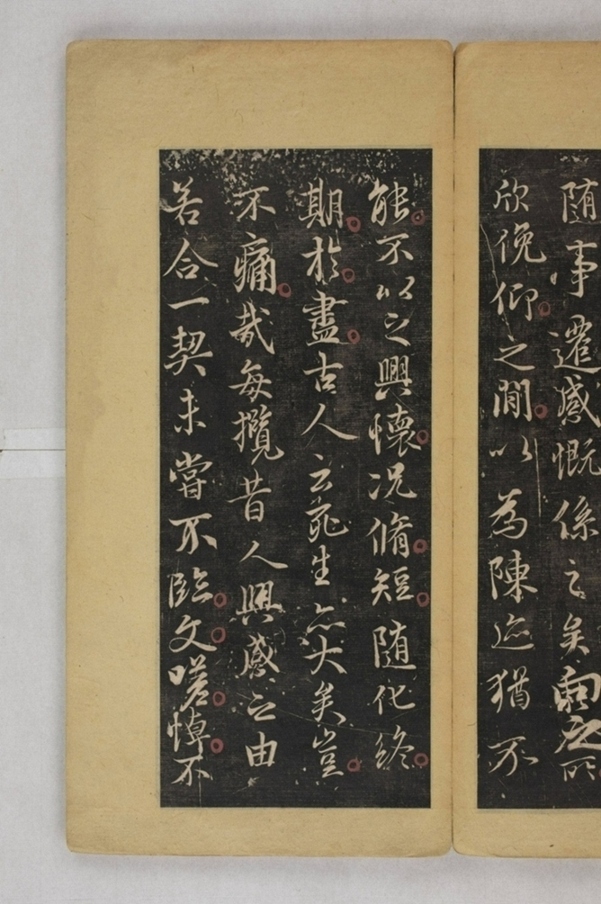 随事遷感慨係之矣向之所
欣俛仰之間以為陳迹猶不
能不以之興懷况脩短随化終
期於盡古人云死生亦大矣豈
不痛哉每攬昔人興感之由
若合一契未嘗不臨文嗟悼不